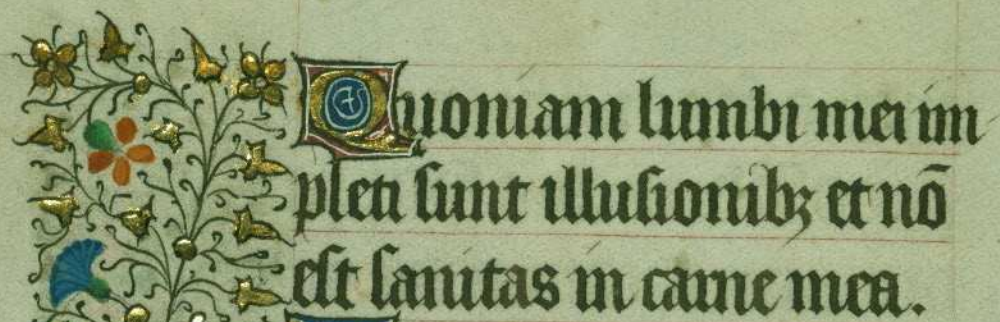 Quoniam lumbi mei im
pleti sunt illusionibꝫ et nō
est sanitas in carne mea.